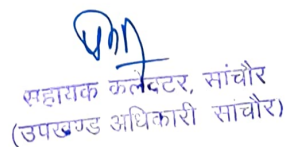 सहायक कलैक्टर, सांचौर
(उपखण्ड अधिकारी सांचौर)